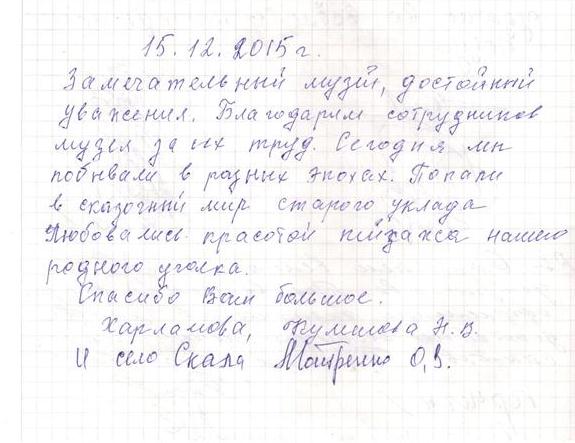 15.12.2015г.
Замечательный музей, достойный
уважения. Благодарим сотрудников
музея за их труд. Сегодня мы
побывали в разных эпохах. Попали
в сказочный мир старого уклада
Любовались красотой пейзажа нашего
родного уголка.
Спасибо Вам большое.
Харламова, Н.В.
И село Скала О.В.